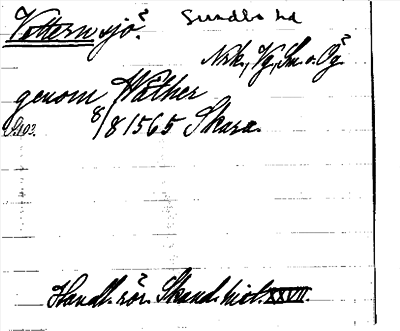 Vättern sjö.
Sundbo hd
Nrk., Vg, Sm. o. Ög
genom Wäther
S. 102. 8/8 1565 Skara.
Handl. rör. Skand. hist. XXVII.